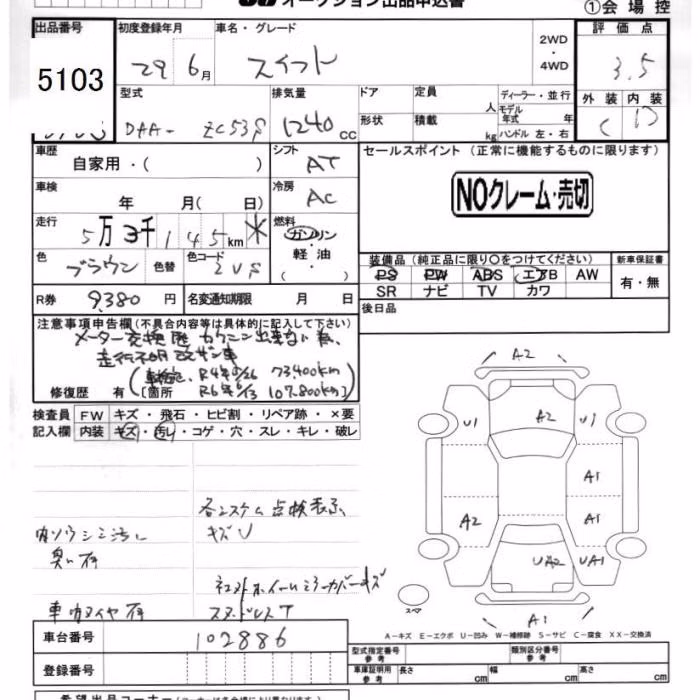 オークション出品申込書
①会場控
出品番号 初度登録年月 車名・グレード 評価点
5103 29 年 6月 スイフト 2WD・4WD 3.5
外装 内装
C D
型式 排気量 ドア 定員 人 ディーラー・並行
DAA- ZC53S 1240 cc 形状 積載 kg モデル年式 年
ハンドル 左・右
車歴 シフト セールスポイント (正常に機能するものに限ります)
自家用・( ) AT
NOクレーム・売切
車検 年 月( 日) 冷房 AC
走行 5万3千145km ＊ 燃料 ガソリン・軽油・( )
色 ブラウン 色替 色コード ZVS
装備品(純正品に限り〇をつけてください) 新車保証書
PS PW ABS エアB AW 有・無
SR ナビ TV カワ
R券 9380 円 名変通知期限 月 日 後日品
注意事項申告欄(不具合内容等は具体的に記入して下さい)
メーター交換歴
走行不明 改ザン車
73400km
修復歴 有 [箇所 107.800km)
検査員 FW キズ・飛石・ヒビ割・リペア跡・×要
記入欄 内装 キズ・汚れ・コゲ・穴・スレ・キレ・破レ
A2
A2
U1 U1
A1
A2 A1
UA2 UA1
スペア A1
各システム点検表示
キズU
内ソウシミ汚レ
臭い有
ホイールミラーカバーキズ
スタッドレスT
A－キズ E－エクボ U－凹み W－補修跡 S－サビ C－腐食 XX－交換済
車台番号 102886
登録番号
型式指定番号 参考 類別区分番号 参考
車庫証明用 参考 長さ cm 幅 cm 高さ cm
希望出品コーナー